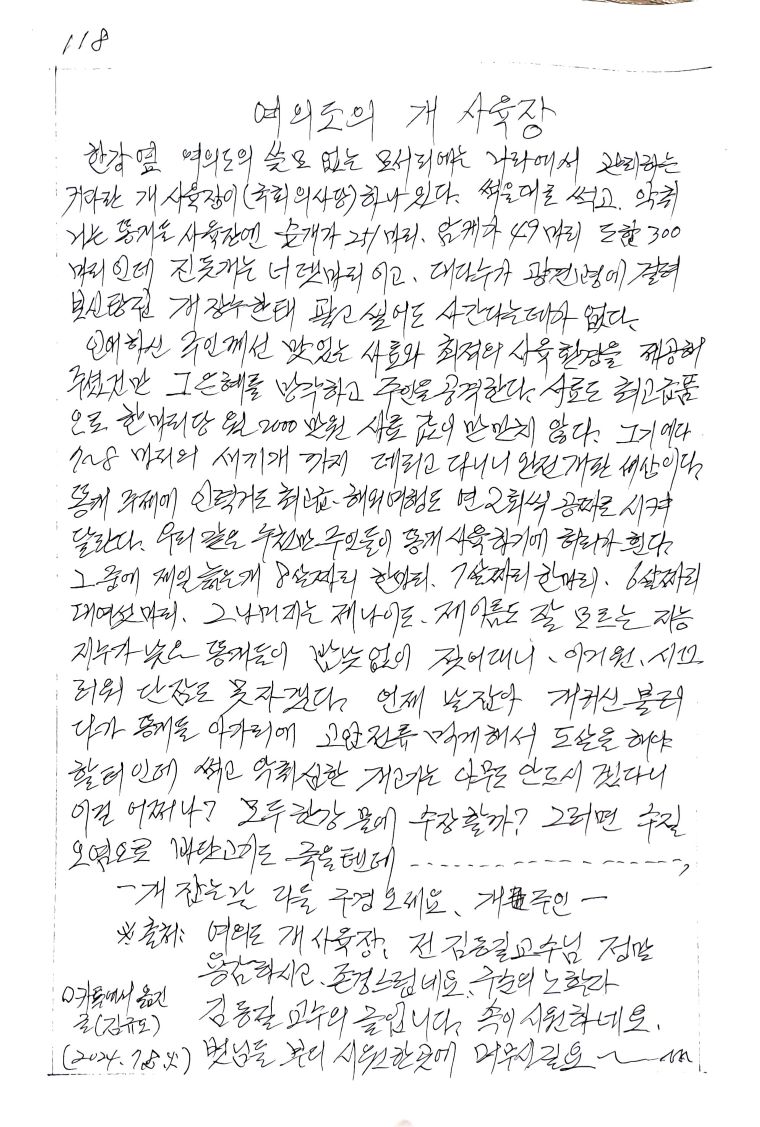 118
여의도의 개 사육장
한강 옆 여의도의 쓸모 없는 모서리에는 나라에서 관리하는
커다란 개 사육장이(국회의사당)하나 있다. 썩을대로 썩고, 악취
나는 똥개들 사육장엔 숫개가 251마리. 암캐가 49마리 도합 300
마리인데 진돗개는 너댓마리이고, 대다수가 광견병에 걸려
보신탕집 개장수한테 팔고 싶어도 사간다는데가 없다.
인애하신 주인께선 맛있는 사료와 최적의 사육환경을 제공해
주셨건만 그 은혜를 망각하고 주인을 공격한다. 사료도 최고급품
으로 한마리당 월 2000만원 사료 값이 만만치 않다. 그기에다
7~8 마리의 새끼개 까지 데리고 다니니 완전개판 세상이다.
똥개 주제에 인력거도 최고급. 해외여행도 년 2회씩 공짜로 시켜
달란다. 우리 같은 수천만 주인들이 똥개 사육하기에 허리가 휜다.
그 중에 제일 늙은개 8살짜리 한마리. 7살짜리 한마리. 6살짜리
대여섯마리. 그 나머지는 제 나이도. 제 이름도 잘 모르는 지능
지수가 낮은 똥개들이 밤낮없이 짖어대니, 이거원, 시끄
러워 단잠도 못자겠다. 언제 날잡아 개귀신 불러
다가 똥개들 아가리에 고압전류 먹게해서 도살을 해야
할터인데 썩고 악취심한 개고기는 아무도 안드시겠다니
이걸 어쩌나? 모두 한강 물에 수장할까? 그러면 수질
오염으로 바닷고기도 죽을텐데 - - - - - - - - - - - - - - - -,
- 개 잡는날 다들 구경오세요, 개 주인 -
※ 출처: 여의도 개 사육장, 전 김동길교수님 정말
용감하시고, 존경스럽네요, 구순의 노학자
김동길 교수의 글입니다. 속이 시원하네요.
벗님들 부디 시원한곳에 머무시길요~
○카톡에서 옮긴
글(김규모)
(2024. 7.25. 火)